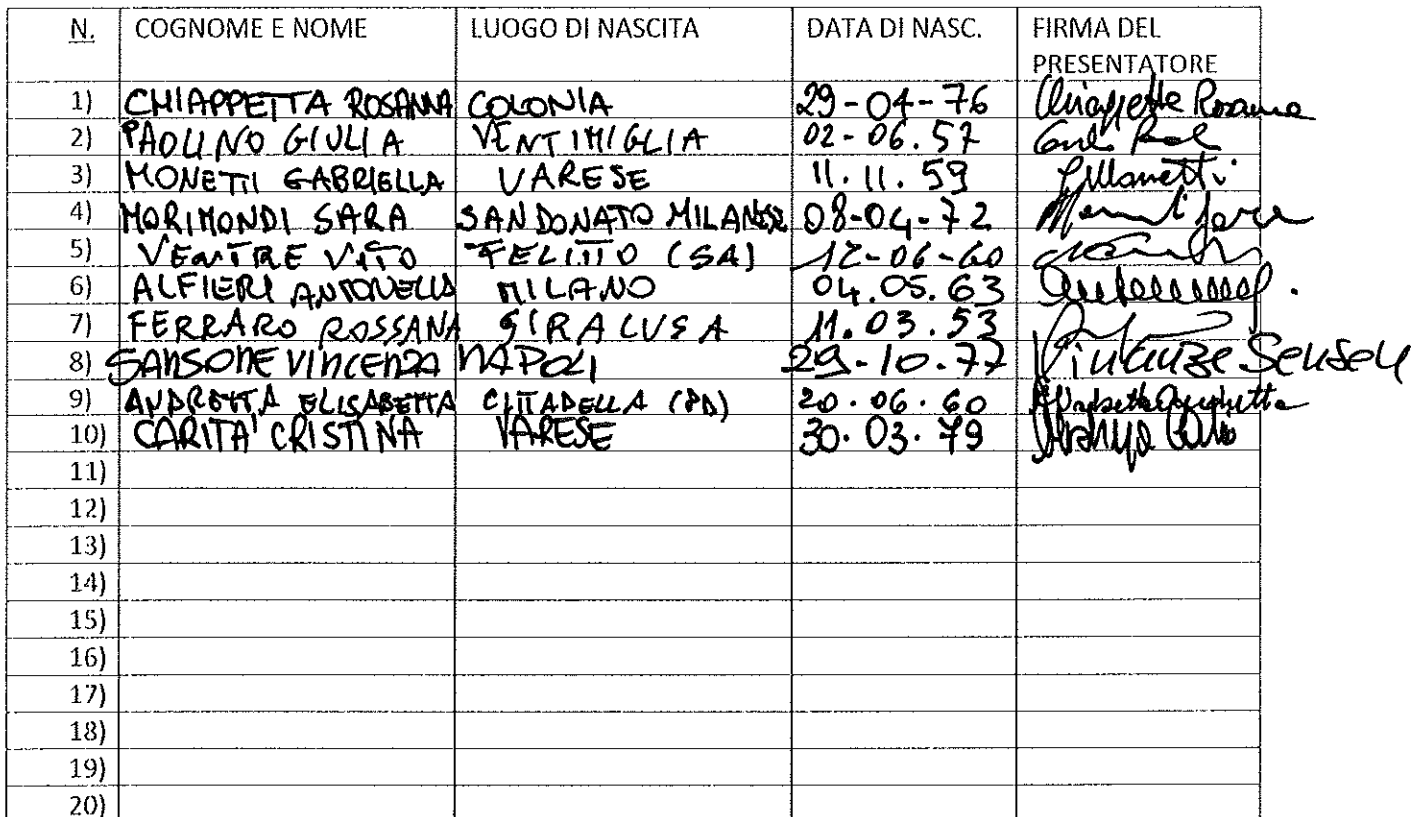 N. COGNOME E NOME LUOGO DI NASCITA DATA DI NASC. FIRMA DEL
PRESENTATORE
1) CHIAPPETTA ROSANNA COLONIA 29-04-76 Chiappetta Rosanna
2) PAOLINO GIULIA VENTIMIGLIA 02-06.57
3) MONETTI GABRIELLA VARESE 11.11.59 GMonetti
4) MORIMONDI SARA SAN DONATO MILANESE 08-04-72
5) VENTRE VITO FELITTO (SA) 12-06-60
6) ALFIERI ANTONELLA MILANO 04.05.63
7) FERRARO ROSSANA SIRACUSA 11.03.53
8) SANSONE VINCENZA NAPOLI 29-10-77 Vincenza Sansone
9) ANDRETTA ELISABETTA CITTADELLA (PD) 20.06.60 Elisabetta Andretta
10) CARITA' CRISTINA VARESE 30.03.79
11)
12)
13)
14)
15)
16)
17)
18)
19)
20)